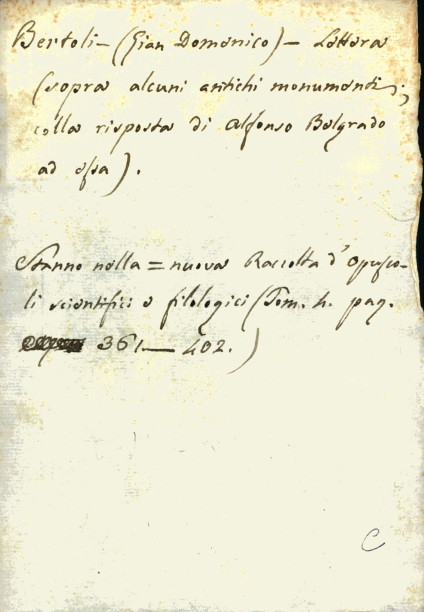 Bertoli - (Gian Domenico) - Lettera
(sopra alcuni antichi monumenti;
colla risposta di Alfonso Belgrado
ad essa).
Stanno nella = nuova Raccolta d'opusco-
li scientifici e filologici (Tom. h. pag.
361 — 402.)
C